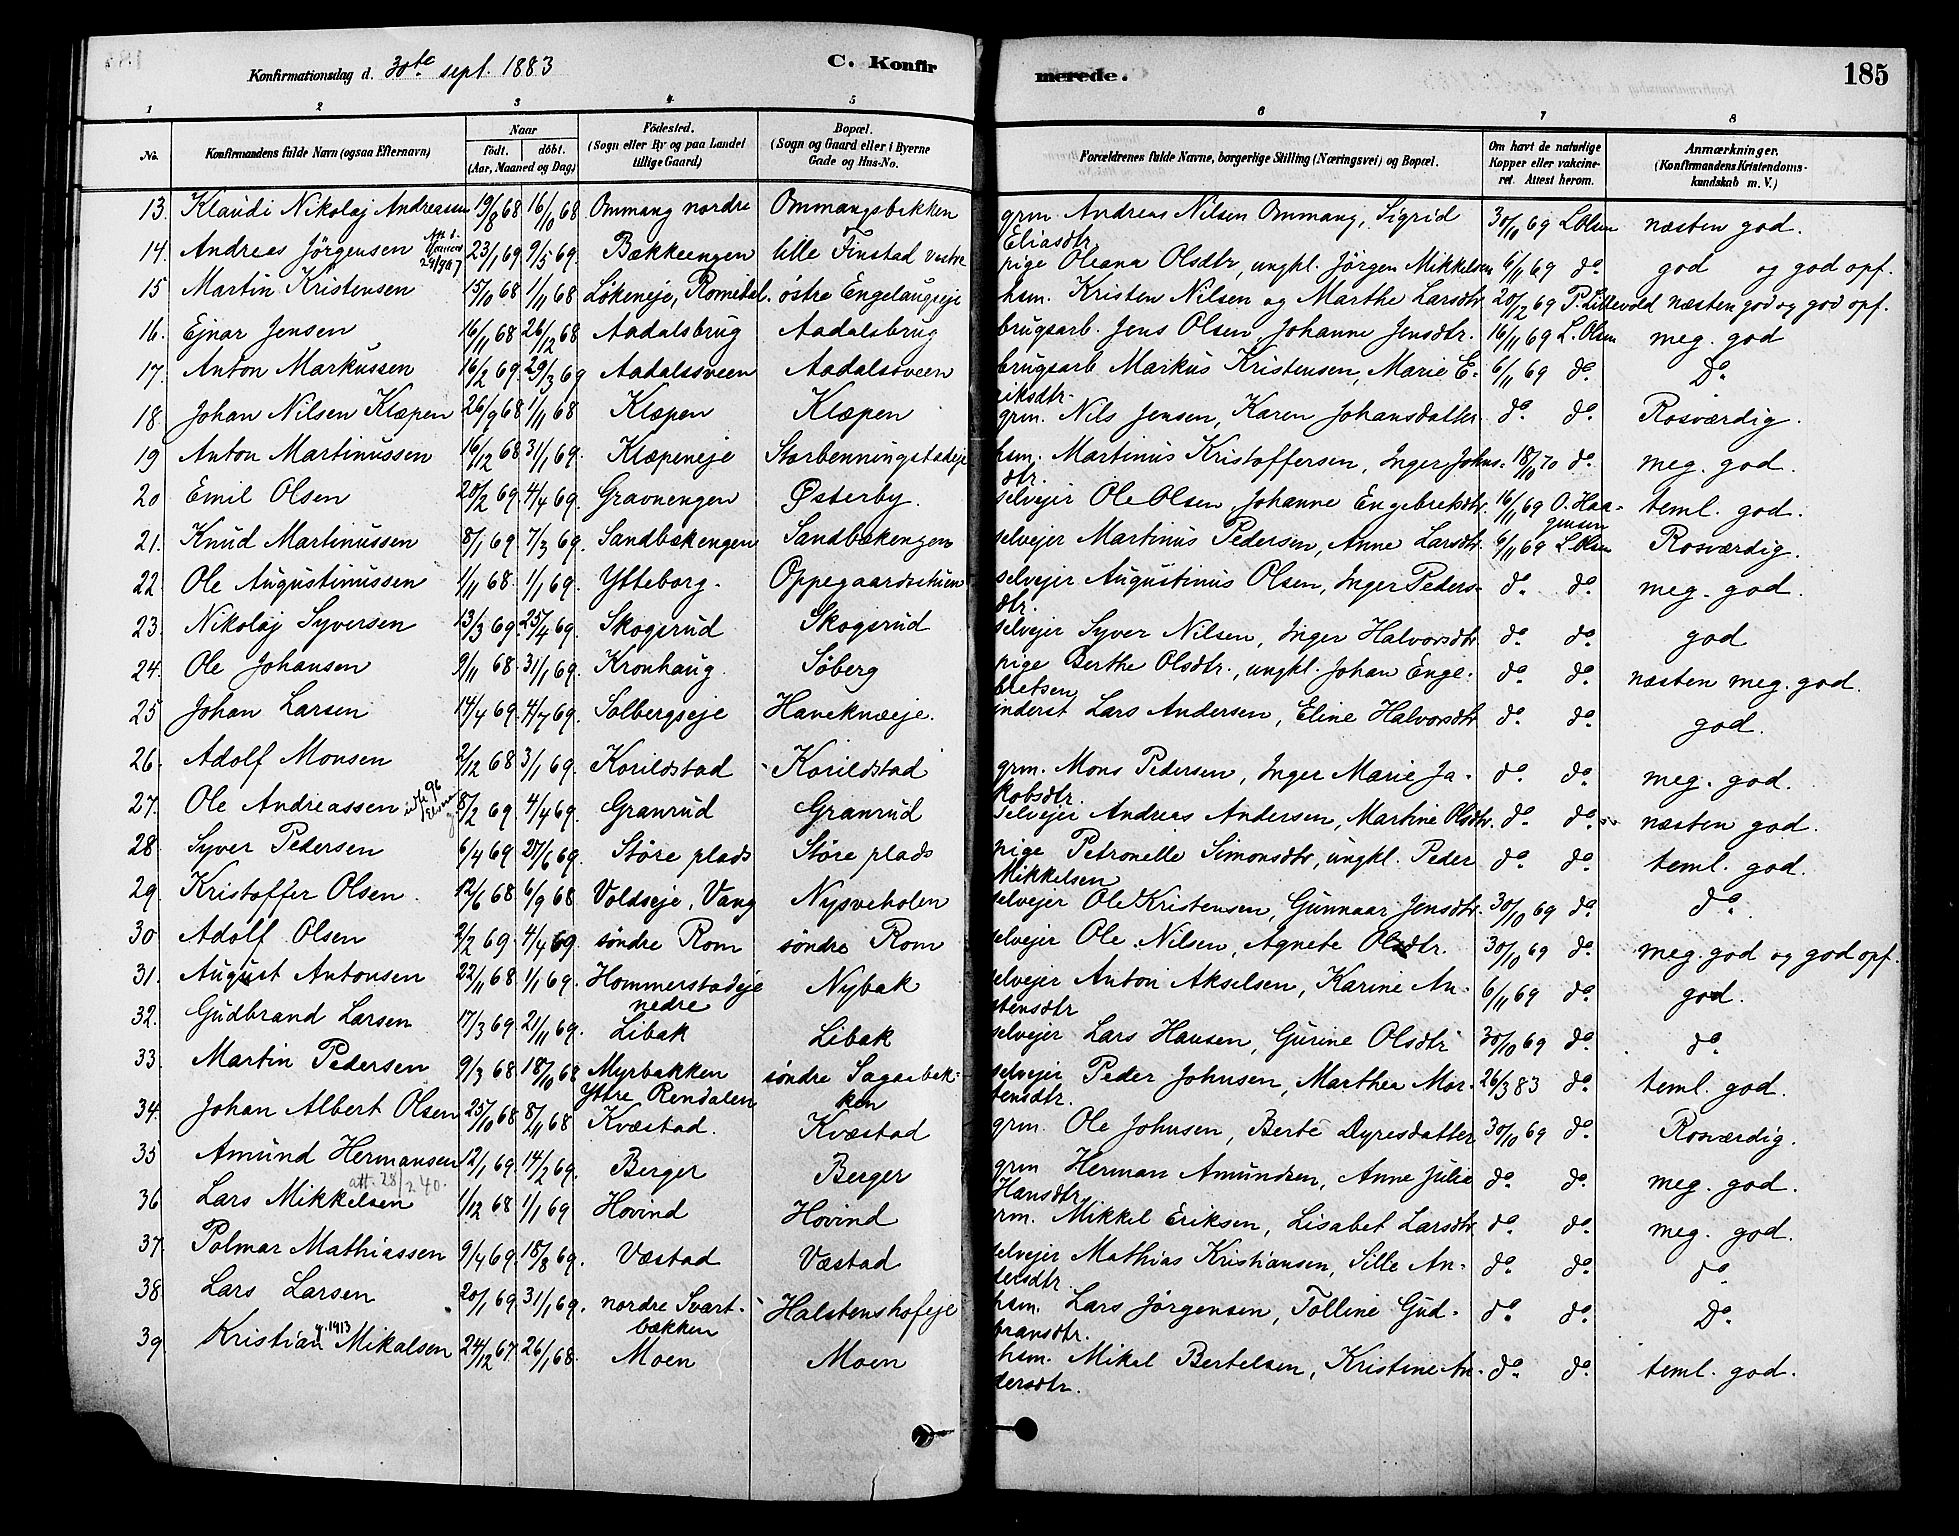 Konfirmationsdag d. 30te sept. 1883 C. Konfirmerede. 185
1 2 3 4 5 6 7 8
No. Konfirmandens fulde Navn (ogsaa Efternavn) Naar födt. döbt. (Aar, Maaned og Dag) Födested. (Sogn eller By og paa Landet tillige Gaard) Bopæl. (Sogn og Gaard eller i Byerne Gade og Hus-No. Forældrenes fulde Navne, borgerlige Stilling (Næringsvei) og Bopæl. Om havt de naturlige Kopper eller vakcineret. Attest herom. Anmærkninger. (Konfirmandens Kristendomskundskab m. V.)
13. Klaudi Nikolaj Andreassen 19/8 68 16/10 68 Ommang nordre Ommangsbakken grm. Andreas Nilsen Ommang, Sigrid Eliasdtr. 30/11 69 L. Olsen næsten god.
14. Andreas Jörgensen 23/1 69 9/5 69. Bækkeengen lille Finstad vestre pige Oleana Olsdtr, ungkl. Jörgen Mikkelsen 6/11 69 do. god og god opf.
15 Martin Kristensen 15/10 68 1/11 68 Lökeneje, Romedal. östre Engelaugseje hsm. Kristen Nilsen og Marthe Larsdtr. 20/12 69 P. Lillevold næsten god og god opf.
16. Ejnar Jensen 16/11 68 26/12 68 Aadalsbrug Aadalsbrug brugsarb. Jens Olsen, Johanne Jensdtr. 16/11 69 L. Olsen meg. god
17. Anton Markussen 16/2 69. 29/3 69 Aadalssveen Aadalssveen brugsarb Markus Kristensen, Marie Eriksdtr. 6/11 69 do. Do.
18. Johan Nilsen Klæpen 26/9 68 1/11 68 Klæpen Klæpen grm. Nils Jensen, Karen Johansdatter do. do. Rosværdig.
19 Anton Martinussen 16/12 68 31/1 69. Klæpeneje Storbenningstadeje hsm. Martinus Kristoffersen, Inger Johnsdtr. 18/11 70 do. meg. god.
20 Emil Olsen 20/2 69. 4/4 69. Gravnengen Østerby. selvejer Ole Olsen, Johanne Engebretsdtr. 16/11 69 O. Haagensen teml. god.
21. Knud Martinussen 8/1 69. 7/3 69. Sandbækengen Sandbækengen selvejer Martinus Pedersen, Anne Larsdtr. 6/11 69 L. Olsen Rosværdig.
22. Ole Augustinussen 1/11 68. 1/1 69. Ytteborg. Oppegaardsstuen selvejer Augustinus Olsen, Inger Pedersdtr. do. do. meg. god.
23. Nikolaj Syversen 13/3 69. 25/4 69. Skogsrud Skogsrud selvejer Syver Nilsen, Inger Halvorsdtr. do. do. god
24. Ole Johansen 9/11 68. 31/1 69. Kronhaug Söberg pige Berthe Olsdtr., ungkl. Johan Engebretsen do. do. næsten meg. god.
25 Johan Larsen 14/4 69. 4/7 69. Solbergseje Haveknæeje. inderst Lars Andersen, Eline Halvorsdtr. do. do. god.
26. Adolf Monsen 2/12 68 3/1 69. Korildstad Korildstad grm. Mons Pedersen, Inger Marie Jakobsdtr. do. do. meg. god.
27. Ole Andreassen 8/2 69 4/4 69. Granrud Granrud Selvejer Andreas Andersen, Martine Olsdtr. do. do. næsten god.
28 Syver Pedersen 6/4 69 27/6 69. Störe plads Störe plads pige Petronelle Simonsdtr, ungkl. Peder Mikkelsen do. do. teml. god.
29. Kristoffer Olsen. 12/6 68 6/9 68 Voldseje, Vang Nysveholen selvejer Ole Kristensen, Gunnaar Jensdtr. 30/10 69 do. do.
30 Adolf Olsen 2/2 69. 4/4 69 söndre Rom söndre Rom selvejer Ole Nilsen, Agnete Olsdtr. 30/10 69 do. meg. god og god opf.
31. August Antonsen 22/11 68 1/1 69. Hommerstadeje nedre Nybak selvejer Anton Akselsen, Karine Antensdtr 6/11 69 do. god.
32. Gudbrand Larsen 17/3 69. 21/11 69. Libak Libak selvejer Lars Hansen, Gurine Olsdtr 30/10 69 do. do.
33. Martin Pedersen 9/3 68 18/10 68 Myrbakken Yttre Rendalen söndre Sagaabakken selvejer Peder Johnsen, Marthea Mortensdtr. 26/3 83 do. teml. god.
34. Johan Albert Olsen 25/10 68 8/11 68 Kvæstad. Kvæstad grm. Ole Johnsen, Berte Dyresdatter 30/10 69 do. Rosværdig.
35 Amund Hermansen 12/1 69. 14/2 69. Berger Berger grm Herman Amundsen, Anne Julie Hansdtr. do. do. meg. god.
att. 28/2 40.
36 Lars Mikkelsen 1/12 68 1/1 69 Hovind Hovind grm. Mikkel Eriksen, Lisabet Larsdtr. do. do. meg. god.
37. Polmar Mathiassen 9/4 69. 18/8 69. Væstad Væstad selvejer Mathias Kristiansen, Sille Andersdtr. do. do. do.
38 Lars Larsen 20/1 69 31/1 69. nordre Svartbækken Halstenshofeje hsm. Lars Jörgensen, Tolline Gudbransdtr. do. do. Do.
39 Kristian Mikalsen g. 1913 24/12 67. 26/1 68. Moen Moen hsm. Mikal Bertelsen, Kristine Andersdtr. do. do. teml. god.